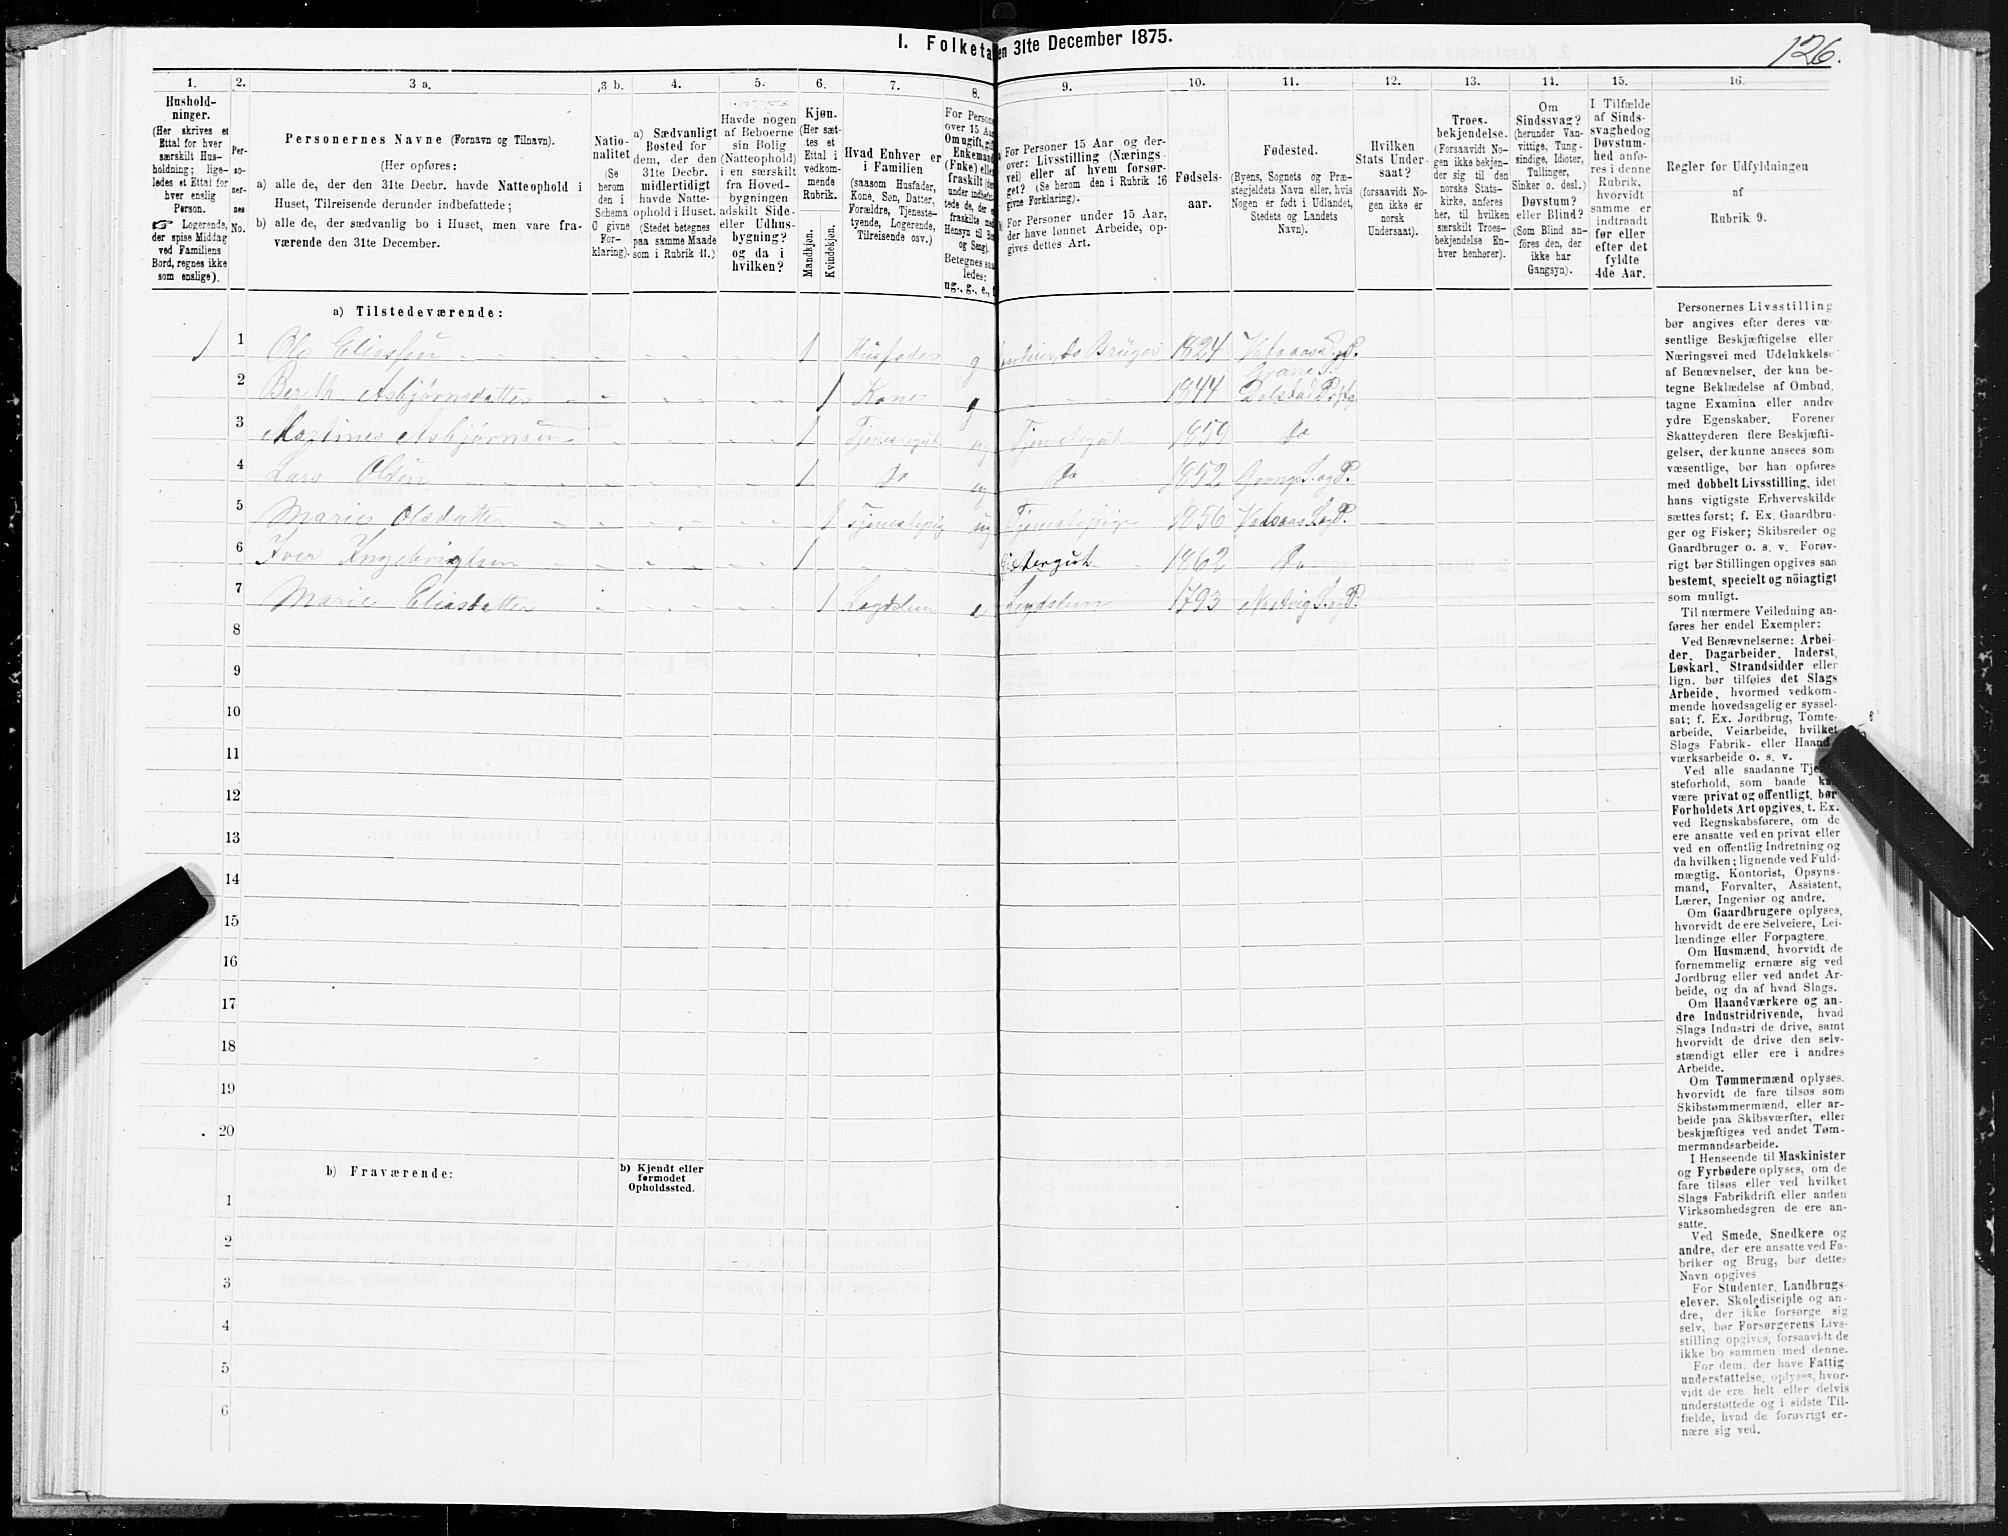 126.
I. Folketa en 31te December 1875.
1. 2. 3 a. 3 b. 4. 5. 6. 7. 8. 9. 10. 11. 12. 13. 14. 15. 16.
Hushold-
ninger.
(Her skrives et
Ettal for hver
særskilt Hus-
holdning; lige-
ledes et Ettal for
hver enslig
Person.
☞ Logerende,
der spise Middag
ved Familiens
Bord, regnes ikke
som enslige).
Per-
so-
ner-
nes
No.
Personernes Navne (Fornavn og Tilnavn).
(Her opføres:
a) alle de, der den 31te Decbr. havde Natteophold i
Huset, Tilreisende derunder indbefattede;
b) alle de, der sædvanlig bo i Huset, men vare fra-
værende den 31te December.
Natio-
nalitet
(Se
herom
den i
Schema
O givne
For-
klaring).
a) Sædvanligt
Bosted for
dem, der den
31te Decbr.
midlertidigt
havde Natte-
ophold i Huset.
(Stedet betegnes
paa samme Maade
som i Rubrik 11.)
Havde nogen
af Beboerne
sin Bolig
(Natteophold)
i en særskilt
fra Hoved-
bygningen
adskilt Side-
eller Udhus-
bygning?
og da i
hvilken?
Kjøn.
(Her sæt-
tes et
Ettal i
vedkom-
mende
Rubrik.
Mandkjøn.
Kvindekjøn.
Hvad Enhver er
i Familien
(saasom Husfader,
Kone, Søn, Datter,
Forældre, Tjeneste-
tyende, Logerende,
Tilreisende osv.)
For Persone
over 15 Aar
Om ugift, gift
Enkemand
(Enke) eller
fraskilt (der
under indbefat-
tede de, der e
fraskilte med
Hensyn til Bor
og Seng).
Betegnes saa
ledes:
ug., g., e., f
For Personer 15 Aar og der-
over: Livsstilling (Nærings-
vei) eller af hvem forsør-
get? (Se herom den i Rubrik 16
givne Forklaring).
For Personer under 15 Aar,
der have lønnet Arbeide, op-
gives dettes Art.
Fødsels-
aar.
Fødested.
(Byens, Sognets og Præ-
stegjeldets Navn eller, hvis
Nogen er født i Udlandet,
Stedets og Landets
Navn).
Hvilken
Stats Under-
saat?
(forsaavidt No-
gen ikke er
norsk
Undersaat).
Troes-
bekjendelse.
(Forsaavidt No-
gen ikke bekjen-
der sig til den
norske Stats-
kirke, anføres
her, til hvilken
særskilt Troes-
bekjendelse En-
hver henhører).
Om
Sindssvag?
(herunder Van-
vittige, Tung-
sindige, Idioter,
Tullinger,
Sinker o. desl.)
Døvstum?
eller Blind?
(Som Blind an-
føres den, der
ikke har
Gangsyn).
I Tilfælde
af Sinds-
svaghed og
Døvstum-
hed anfø-
res i denne
Rubrik,
hvorvidt
samme er
indtraadt
før eller
efter det
fyldte
4de Aar.
Regler før Udfyldningen
af
Rubrik 9.
a) Tilstedeværende:
1 1 Ole Eliassen 1 Husfader g Bruger 1824
2 Bereth Asbjørnsdatter 1 Kone g 1844 Grane S. Dolstad
3 Martines Asbjørnsen 1 Tjenestegut ug Tjenestegut 1859 Do
4 Lars Olsen 1 Do ug Do 1852 Grongs S. og P.
5 Marie Olsdatter 1 ug 1856
6 Iver Ingebrigtsen 1 1862 Do
7 Marie Eliasdatter 1 e 1793
8
9
10
11
12
13
14
15
16
17
18
19
20
b) Fraværende:
b) Kjendt eller
formodet
Opholdssted.
1
2
3
4
5
6
Personernes Livsstilling
bør angives efter deres væ-
sentlige Beskjæftigelse eller
Næringsvei med Udelukkelse
af Benævnelser, der kun be-
tegne Beklædelse af Ombud,
tagne Examina eller andre
ydre Egenskaber. Forener
Skatteyderen flere Beskjæfti-
gelser, der kunne ansees som
væsentlige, bør han opføres
med dobbelt Livsstilling, idet
hans vigtigste Erhvervskilde
sættes først; f. Ex. Gaardbru-
ger og Fisker; Skibsreder og
Gaardbruger o. s. v. Forøv-
rigt bør Stillingen opgives saa
bestemt, specielt og nöiagtigt
som muligt.
Til nærmere Veiledning an-
føres her endel Exempler:
Ved Benævnelserne: Arbei-
der, Dagarbeider, Inderst,
Løskarl, Strandsidder eller
lign. bør tilføies det Slags
Arbeide, hvormed vedkom-
mende hovedsagelig er syssel-
sat; f. Ex. Jordbrug, Tomte-
arbeide, Veiarbeide, hvilket
Slags Fabrik- eller Haand-
værksarbeide o. s. v.
Ved alle saadanne Tje
steforhold, som baade ka
være privat og offentligt, bør
Forholdets Art opgives, t. Ex.
ved Regnskabsførere, om de
ere ansatte ved en privat eller
ved en offentlig Indretning og
da hvilken; lignende ved Fuld-
mægtig, Kontorist, Opsyns-
mand, Forvalter, Assistent,
Lærer, Ingeniør og andre.
Om Gaardbrugere oplyses,
hvorvidt de ere Selveiere, Lei-
lændinge eller Forpagtere.
Om Husmænd, hvorvidt de
fornemmelig ernære sig ved
Jordbrug eller ved andet Ar-
beide, og da af hvad Slags.
Om Haandværkere og an-
dre Industridrivende, hvad
Slags Industri de drive, samt
hvorvidt de drive den selv-
stændigt eller ere i andres
Arbeide.
Om Tømmermænd oplyses,
hvorvidt de fare tilsøs som
Skibstømmermænd, eller ar-
beide paa Skibsværfter, eller
beskjæftiges ved andet Tøm-
mermandsarbeide.
I Henseende til Maskinister
og Fyrbødere oplyses, om de
fare tilsøs eller ved hvilket
Slags Fabrikdrift eller anden
Virksomhedsgren de ere an-
satte.
Ved Smede, Snedkere og
andre, der ere ansatte ved Fa-
briker og Brug, bør dettes
Navn opgives
For Studenter, Landbrugs-
elever, Skoledisciple og an-
dre, der ikke forsørge sig
selv, bør Forsørgerens Livs-
stilling opgives, forsaavidt de
ikke bo sammen med denne.
For dem, der have Fattig-
understøttelse, oplyses, hvor-
vidt de ere helt eller delvis
understøttede og i sidste Til-
fælde, hvad de forøvrigt er-
nære sig ved.